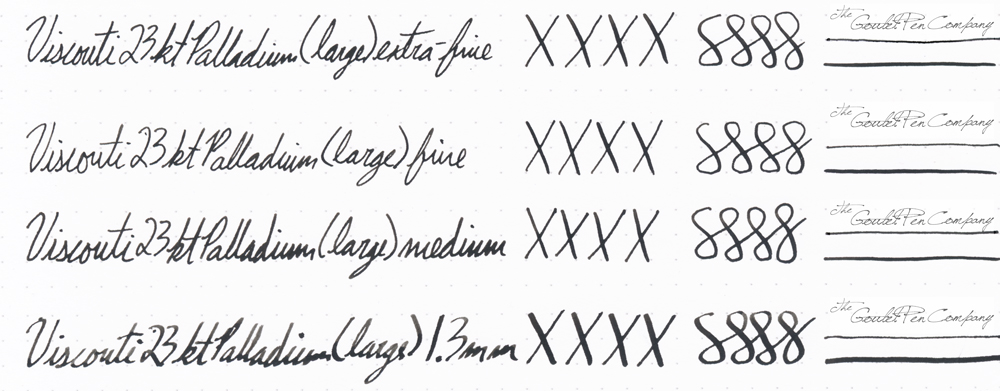 Visconti 23kt Palladium (large) extra-fine XXXX 8888 The Goulet Pen Company
Visconti 23kt Palladium (large) fine XXXX 8888 The Goulet Pen Company
Visconti 23kt Palladium (large) medium XXXX 8888 The Goulet Pen Company
Visconti 23kt Palladium (large) 1.3mm XXXX 8888 The Goulet Pen Company